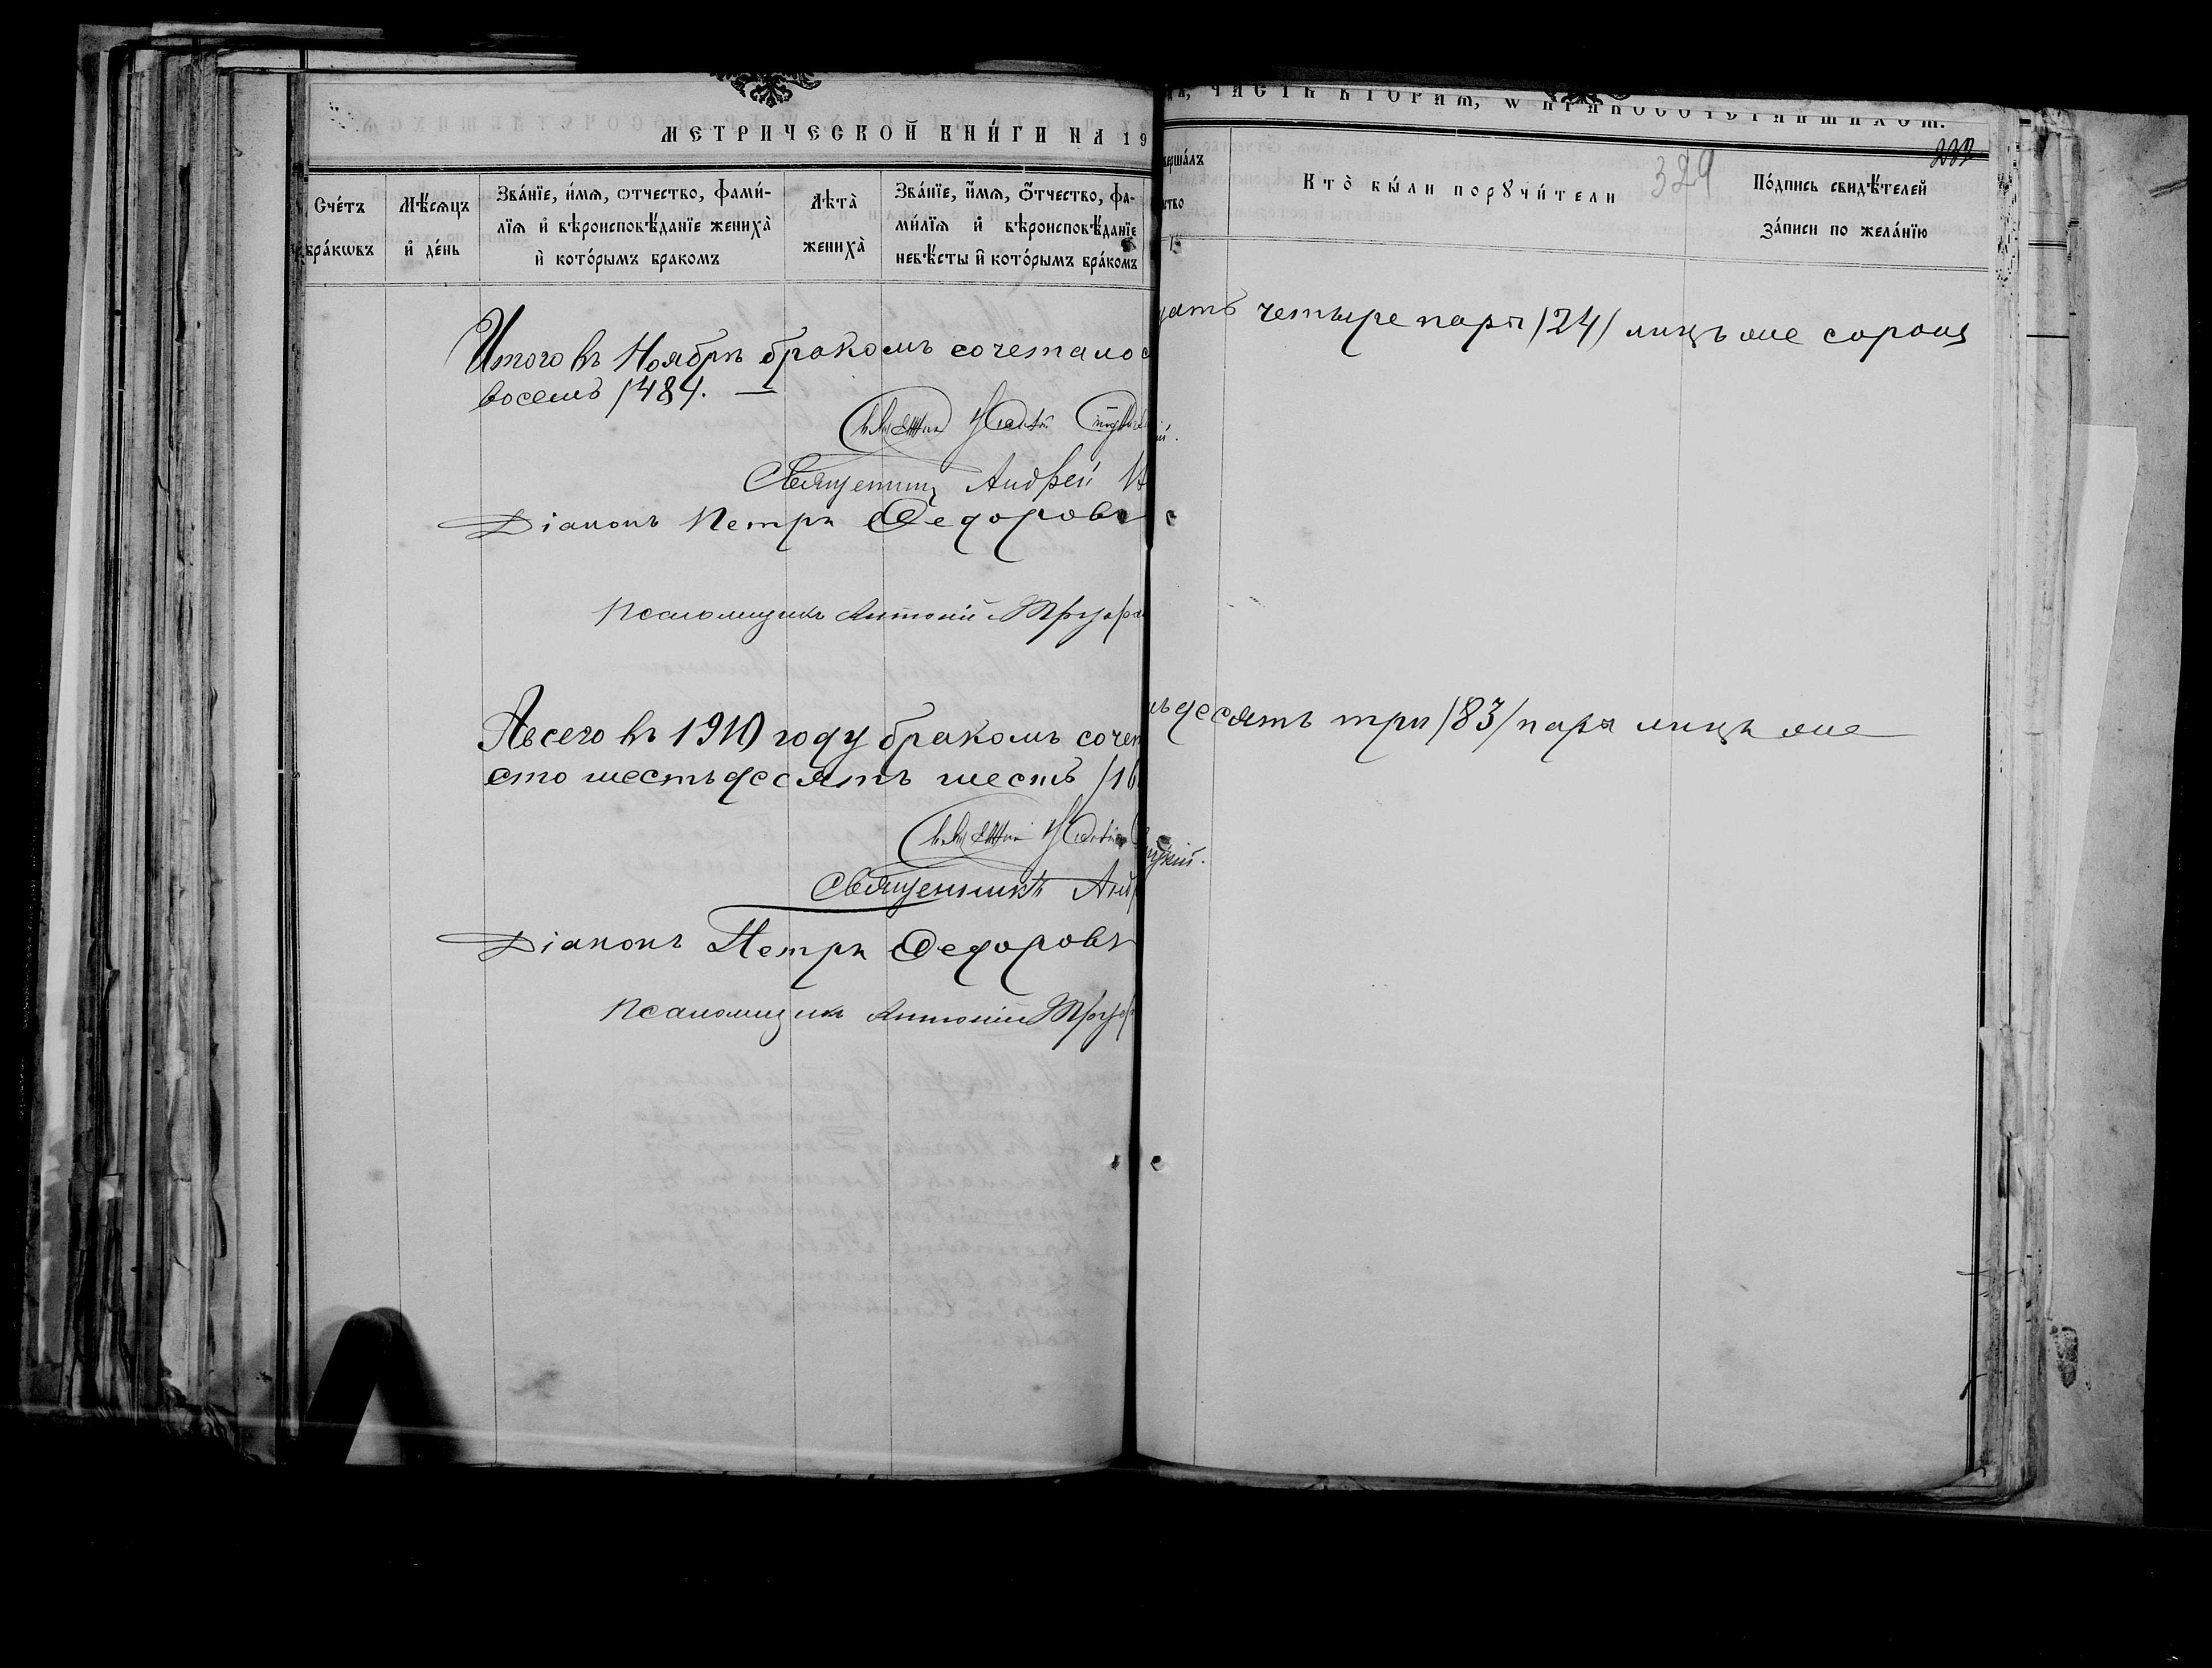 МЕТРИЧЕСКОЙ КНИ́ГИ НА 19
ЧАСТЬ ВТОРАѦ, Ѡ БРАКОСОЧЕТАВШИХСѦ.
329
232
Сче́тъ бра́кѡвъ
Мѣ́сѧцъ и҆ де́нь
Зва́нїе, и҆́мѧ, ѻтчество, фами́-
лїѧ и҆ вѣроисповѣ́данїе жениха̀
и҆ кото́рымъ бракомъ
Лѣта̀ жениха̀
Зва́нїе, и҆́мѧ, ѻ҆́тчество, фа-
ми́лїѧ и҆ вѣроисповѣ́данїе
невѣ́сты и҆ кото́рымъ бра́комъ
верша́лъ
ство
Кто̀ бы́ли порꙋчи́тели
По́дпись свидѣ́телей
за́писи по жела́нїю
Итого въ Ноябрѣ бракомъ сочеталос
дать четыре пары /24/ лицъ же сорокъ
восемь /48/. —
Священникъ Андрей
Діаконъ Петръ Федоровъ
Псаломщикъ Антоній
Авсего въ 1910 году бракомъ сочет
мьдесятъ три /83/ пары лицъ же
сто шестьдесятъ шесть /16
Священникъ Анд
Діаконъ Петръ Федоровъ
Псаломщикъ Антоній